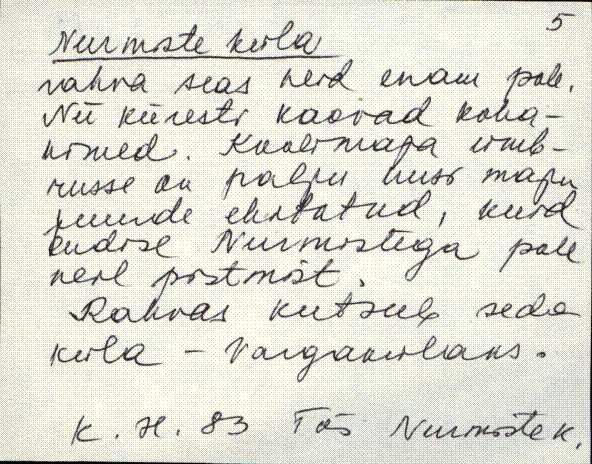 5
Nurmiste küla
rahva seas neid enam pole.
Nii kiiresti kaovad koha-
nimed. Koolimaja ümb-
russe on palju uusi maju
juurde ehitatud, kuid
endise Nurmistega pole
neil pistmist.
Rahvas kutsub seda
küla – Vargakülaks.
K. H. 83 Tõs Nurmiste k.